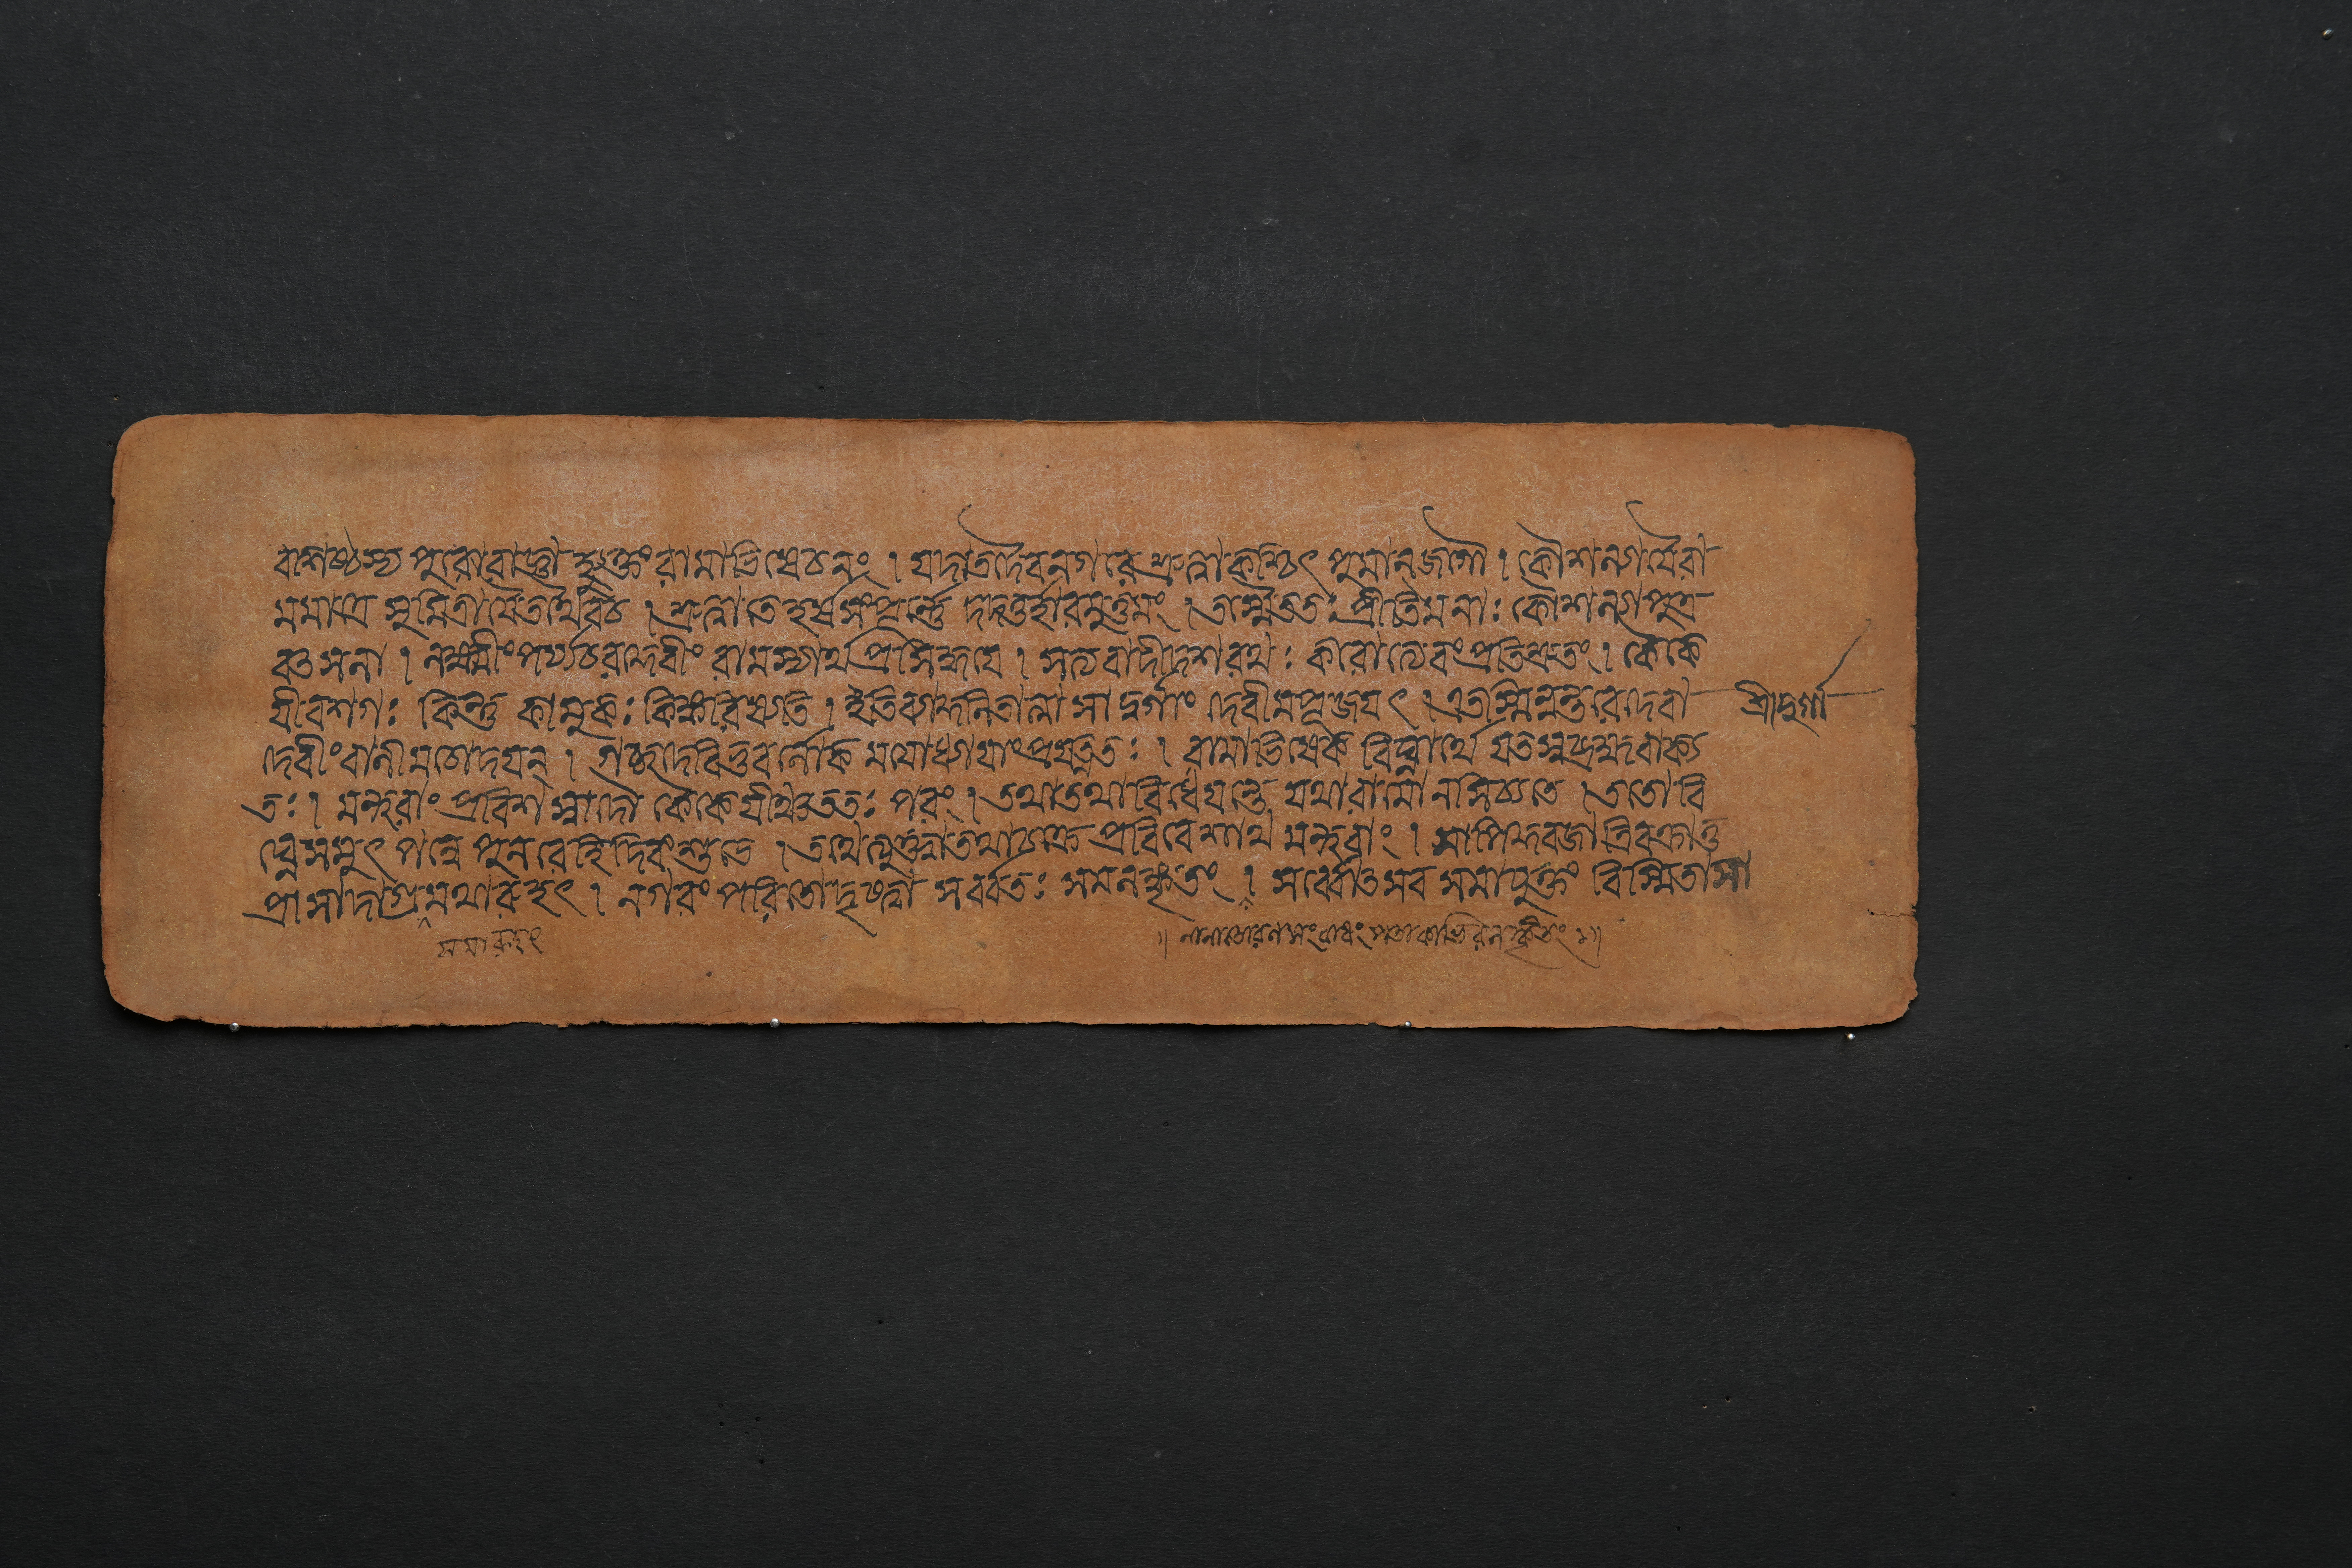 বশিষ্ঠস্য পুরোরাজ্ঞা হ্যুক্তং রামাভিষেচনং । যদাতদৈবনগরে শ্রুত্বাকশ্চিৎ পুমানজগৌ । কৌশল্যায়ৈরা
মমাত্রে সুমিত্রায়ৈতথৈবচ । শ্রুত্বাতেহর্ষসংপূর্ণে দদতুর্হারমুত্তমং । তস্মৈততঃ প্রীতিমনাঃ কৌশল্যাপুত্র
বৎসলা । লক্ষ্মীং পর্য্যচরদ্দেবীং রামস্যার্থপ্রসিদ্ধয়ে । সত্যবাদীদশরথঃ করোত্যেবংপ্রতিশ্রুতং । কৈকে
য়ীবশগঃ কিন্তু কামুকঃ কিঙ্করিষ্যতি । ইতিব্যাকুলচিত্তা সা দুর্গাং দেবীমপূজয়ৎ । এতস্মিন্নন্তরেদেবা
দেবীংবাণীমচোদয়ন্ । গচ্ছদেবিভুবর্লোক মযোধ্যায়াংপ্রযত্নতঃ । রামাভিষেক বিঘ্নার্থে যতস্বব্রহ্মবাক্য
তঃ । মন্থরাং প্রবিশ স্বাদৌ কৈকেয়ীঞ্চততঃ পরং । তথাতথাবিধেয়ন্তে যথারামোনসিচ্যতে । ততোবি
ঘ্নেসমুৎ পন্নে পুনরেহিদিবংশুভে । তথেত্যুক্ত্বাতথাচক্রে প্রবিবেশাথ মন্থরাং । সাপিকুব্জাত্রিবক্রাতু
প্রাসাদাগ্রমথারুহৎ । নগরং পরিতোদৃষ্ট্বা সর্ব্বতঃ সমলঙ্কৃতং । সর্ব্বোৎসব সমাযুক্তং বিস্মিতাসা
শ্রীদুর্গা
সমারুহৎ
॥ নানাতোরণসংবাধং পতাকাভিরলঙ্কৃতং ॥